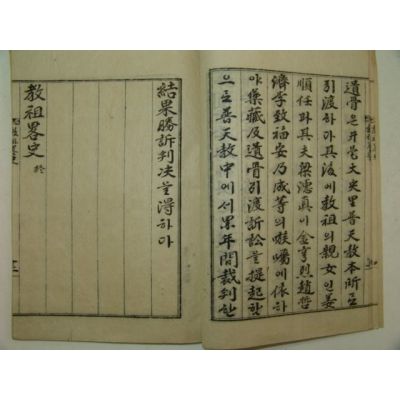 遺骨은井邑大興里普天教本所로
引渡하야其後에教祖의親女인姜
順任과其夫梁 眞이金亨烈趙哲
濟李致福安乃成等의嗾囑에依하
야藥藏及遺骨引渡訴訟을提起함
으로普天教中에서累年間裁判한
結果勝訴判决을得하다
教祖畧史 終